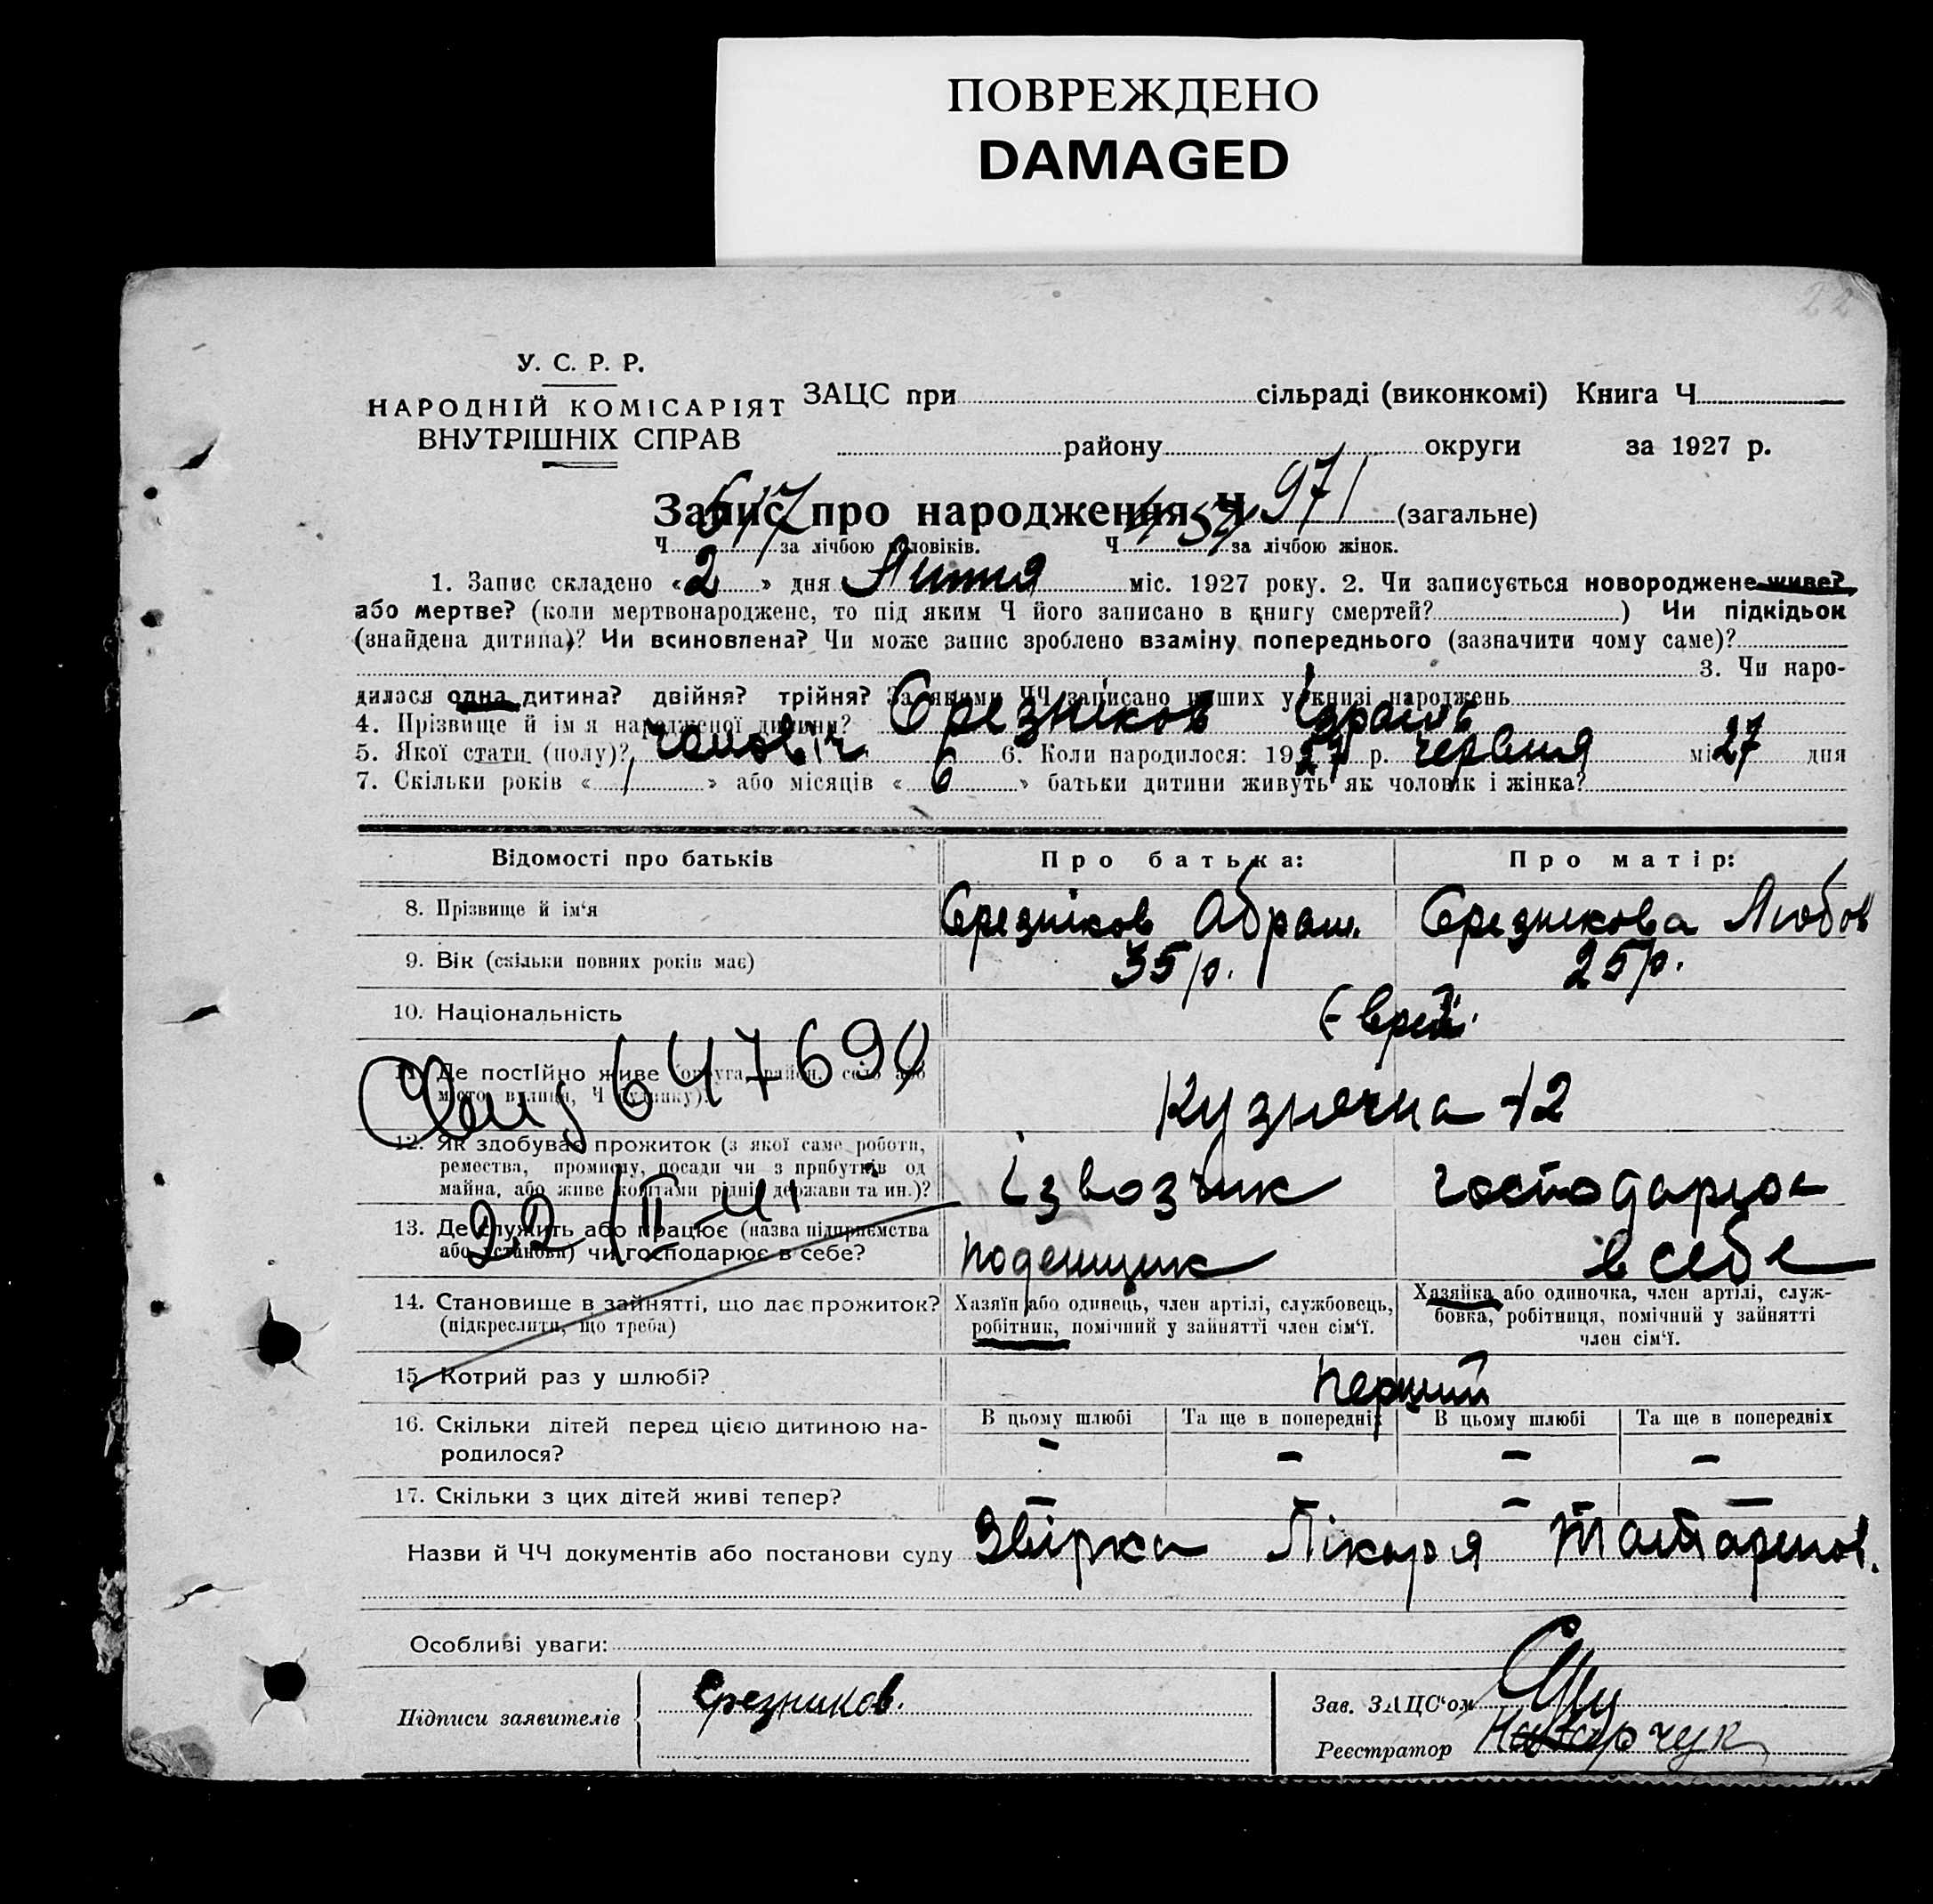 ПОВРЕЖДЕНО
DAMAGED
У. С. Р. Р.
НАРОДНІЙ КОМІСАРІЯТ
ВНУТРІШНІХ СПРАВ
ЗАЦС при сільраді (виконкомі) Книга Ч
району округи за 1927 р.
Запис про народження Ч 971 (загальне)
Ч 517 за лічбою чоловіків. Ч 454 за лічбою жінок.
1. Запис складено «2» дня Липня міс. 1927 року. 2. Чи записується новороджене живе?
або мертве? (коли мертвонароджене, то під яким Ч його записано в книгу смертей?) Чи підкідьок
(знайдена дитина)? Чи всиновлена? Чи може запис зроблено взаміну попереднього (зазначити чому саме)?
3. Чи наро-
дилося одна дитина? двійня? трійня? За якими ЧЧ записано інших у книзі народжень
4. Прізвище й ім'я народженої дитини? Срезніков Ізраїль
5. Якої стати (полу)? чоловіч. 6. Коли народилося: 1927 р. червня міс 27 дня
7. Скільки років «1» або місяців «6» батьки дитини живуть як чоловік і жінка?
Відомості про батьків Про батька: Про матір:
8. Прізвище й ім'я Срезніков Абрам. Срезникова Любов
9. Вік (скільки повних років має) 35 р. 25 р.
10. Національність Євреї
11. Де постійно живе (округа, район, село або
місто, вулиця, Ч будинку). Кузнечна 12
647690
12. Як здобуває прожиток (з якої саме роботи,
ремества, промислу, посади чи з прибутків од
майна, або живе коштами рідні, держави та ин.)? ізвозчик господарює
22/II-41
13. Де служить або працює (назва підприємства
або установи) чи господарює в себе? поденщик в себе
14. Становище в зайнятті, що дає прожиток?
(підкреслити, що треба)
Хазяїн або одинець, член артілі, службовець,
робітник, помічний у зайнятті член сім'ї.
Хазяйка або одиночка, член артілі, служ-
бовка, робітниця, помічний у зайнятті
член сім'ї.
15. Котрий раз у шлюбі? перший
16. Скільки дітей перед цією дитиною на-
родилося?
В цьому шлюбі Та ще в попередніх В цьому шлюбі Та ще в попередніх
- - - -
17. Скільки з цих дітей живі тепер? - - -
Назви й ЧЧ документів або постанови суду Звірка Лікаря
Особливі уваги:
Підписи заявителів Срезников.
Зав. ЗАЦС'ом
Реєстратор